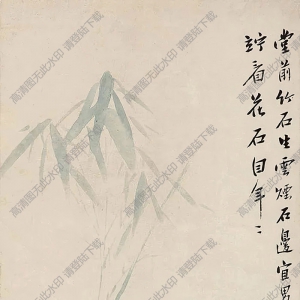 堂前竹石生雲煙石邊宜男
竚看花石自年〻
高清图无此水印 请登陆下载
高清图无此水印 请登陆下载
高清图无此水印 请登陆下载
高清图无此水印 请登陆下载